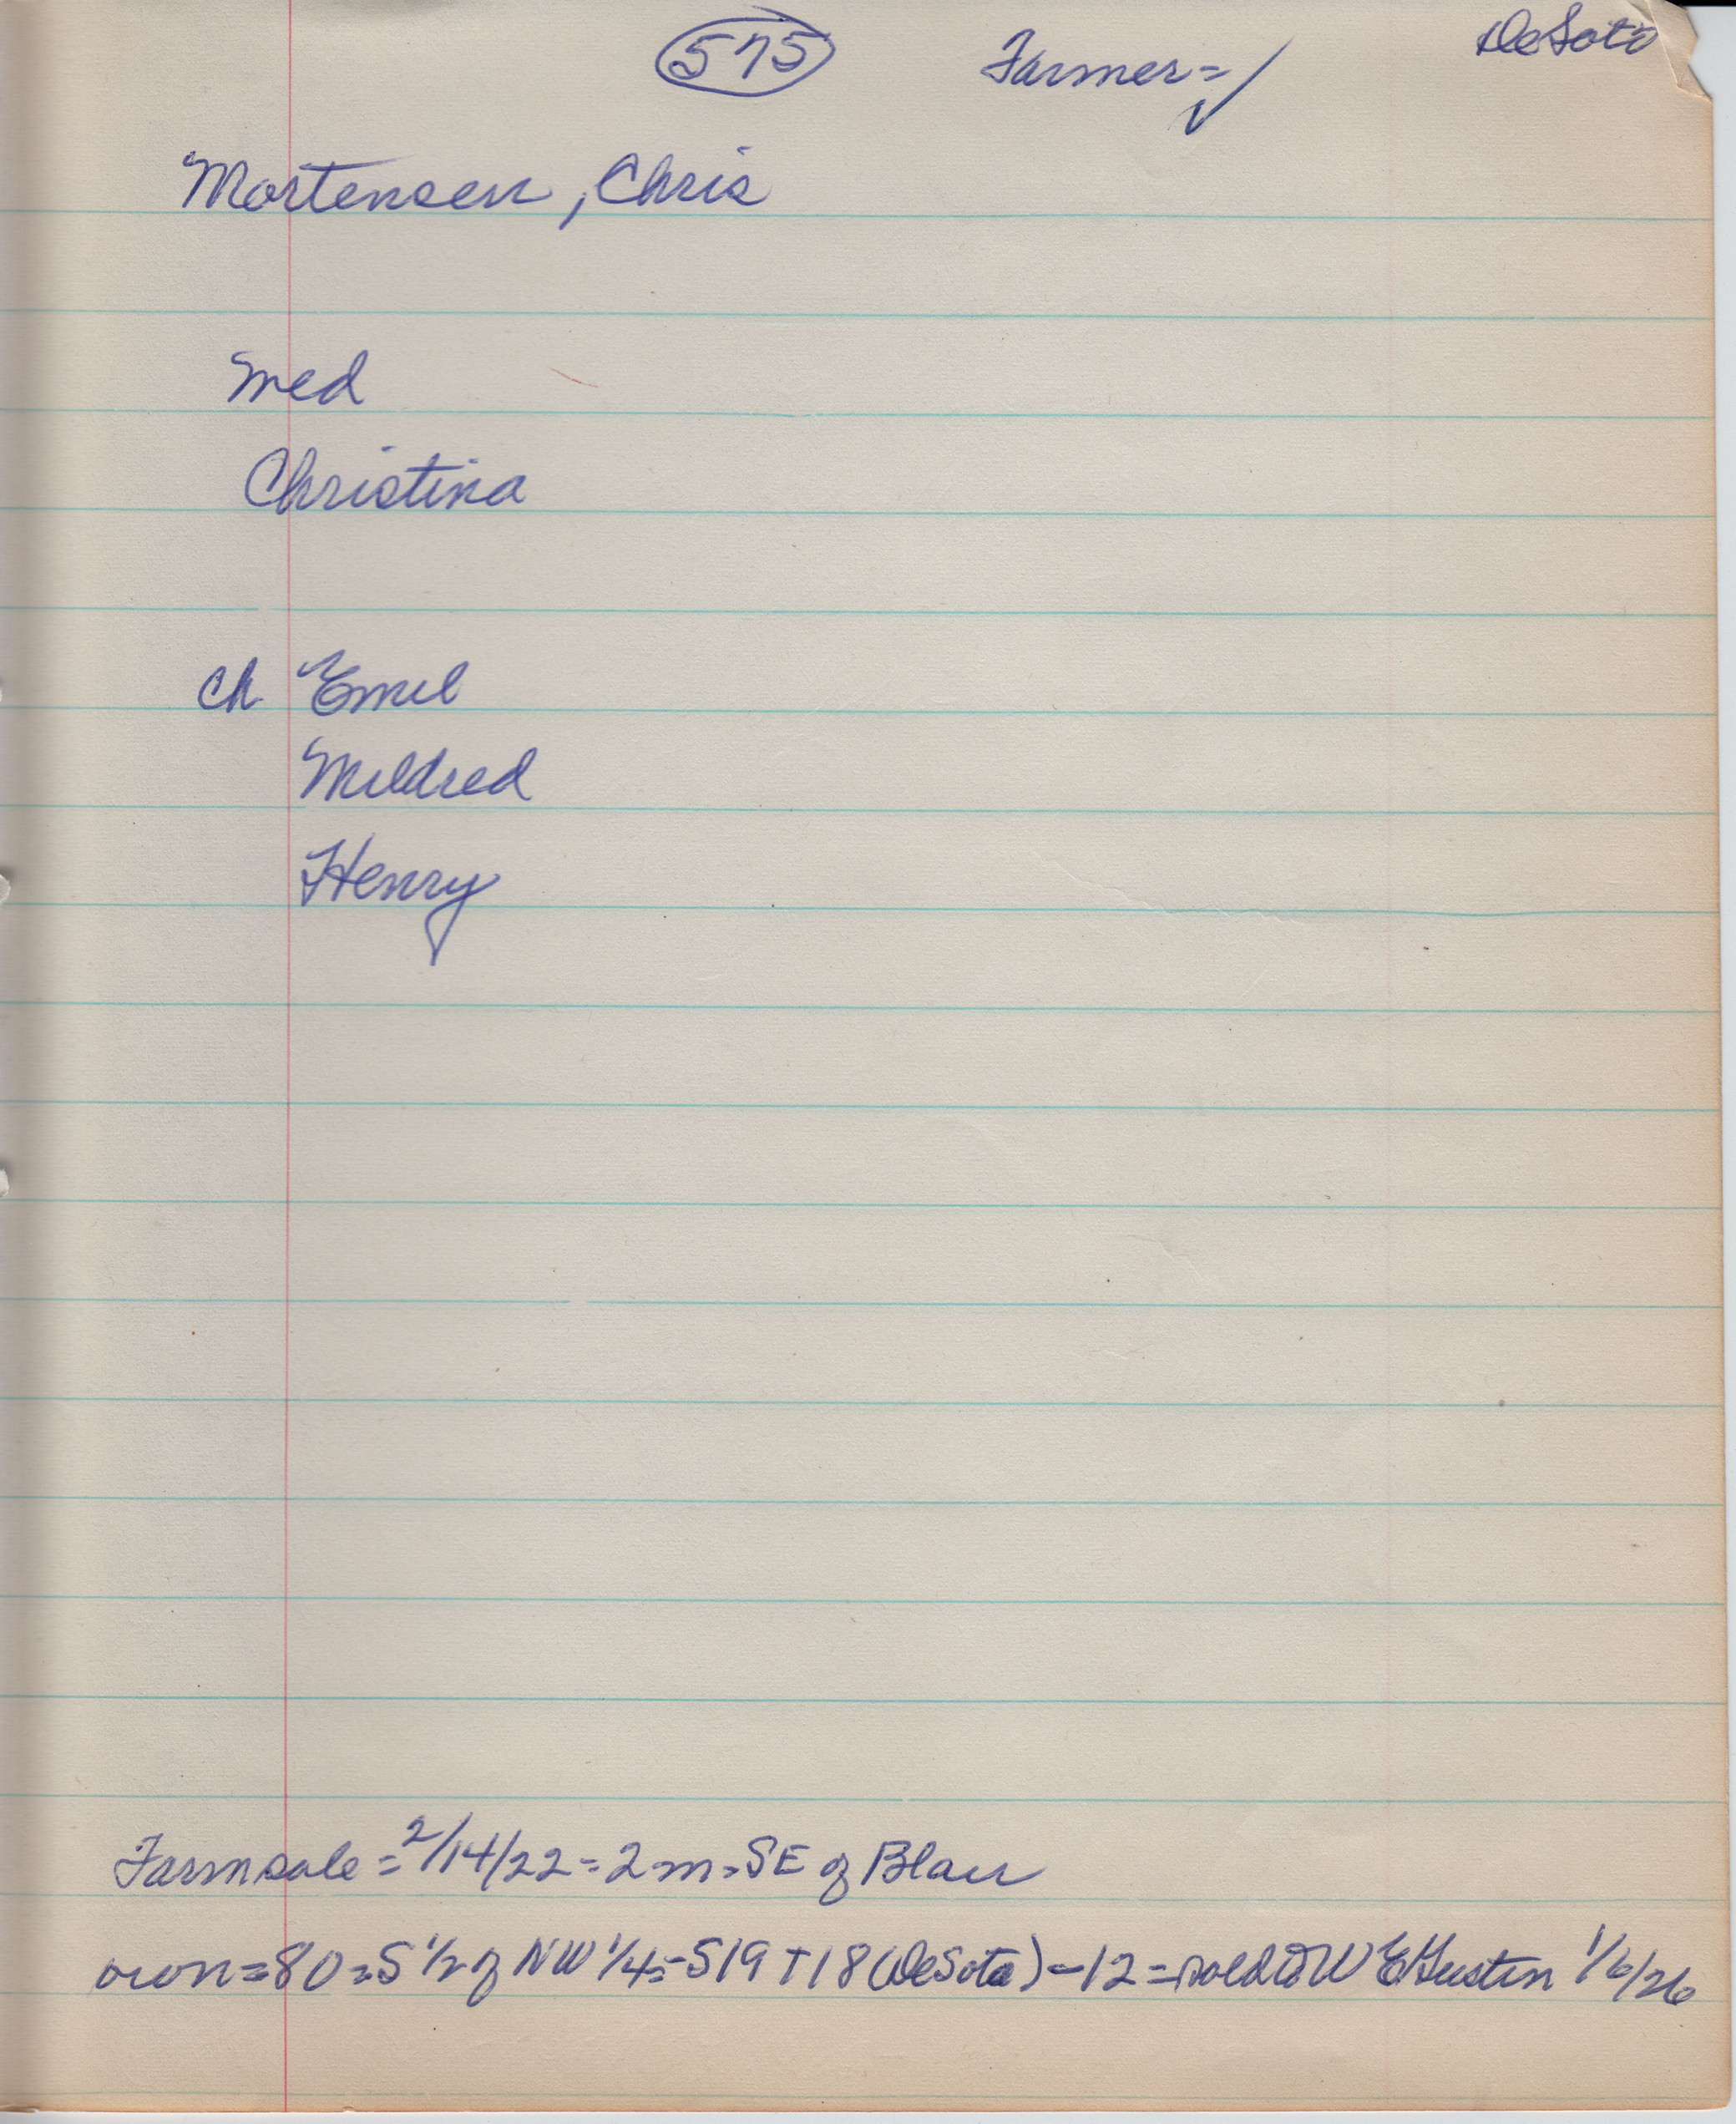 575 Farmer = ✓ DeSoto
Mortensen, Chris
med
Christina
ch Emil
Mildred
Henry
Farm sale = 2/14/22 = 2 m. SE of Blair
own = 80 = S 1/2 of NW 1/4 = S19 T18 (DeSoto) - 12 = sold to W E Gustin 1/6/26